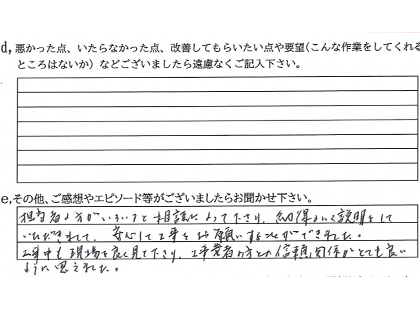 d, 悪かった点、いたらなかった点、改善してもらいたい点や要望(こんな作業をしてくれる
ところはないか）などございましたら遠慮なくご記入下さい。
e,その他、ご感想やエピソード等がございましたらお聞かせ下さい。
担当者の方がいろいろと相談にのって下さり、納得のいく説明をして
いただきまして、安心して工事をお願いすることができました。
工事中も現場を良く見て下さり、工事業者の方との信頼関係がとても良い
ように思えました。